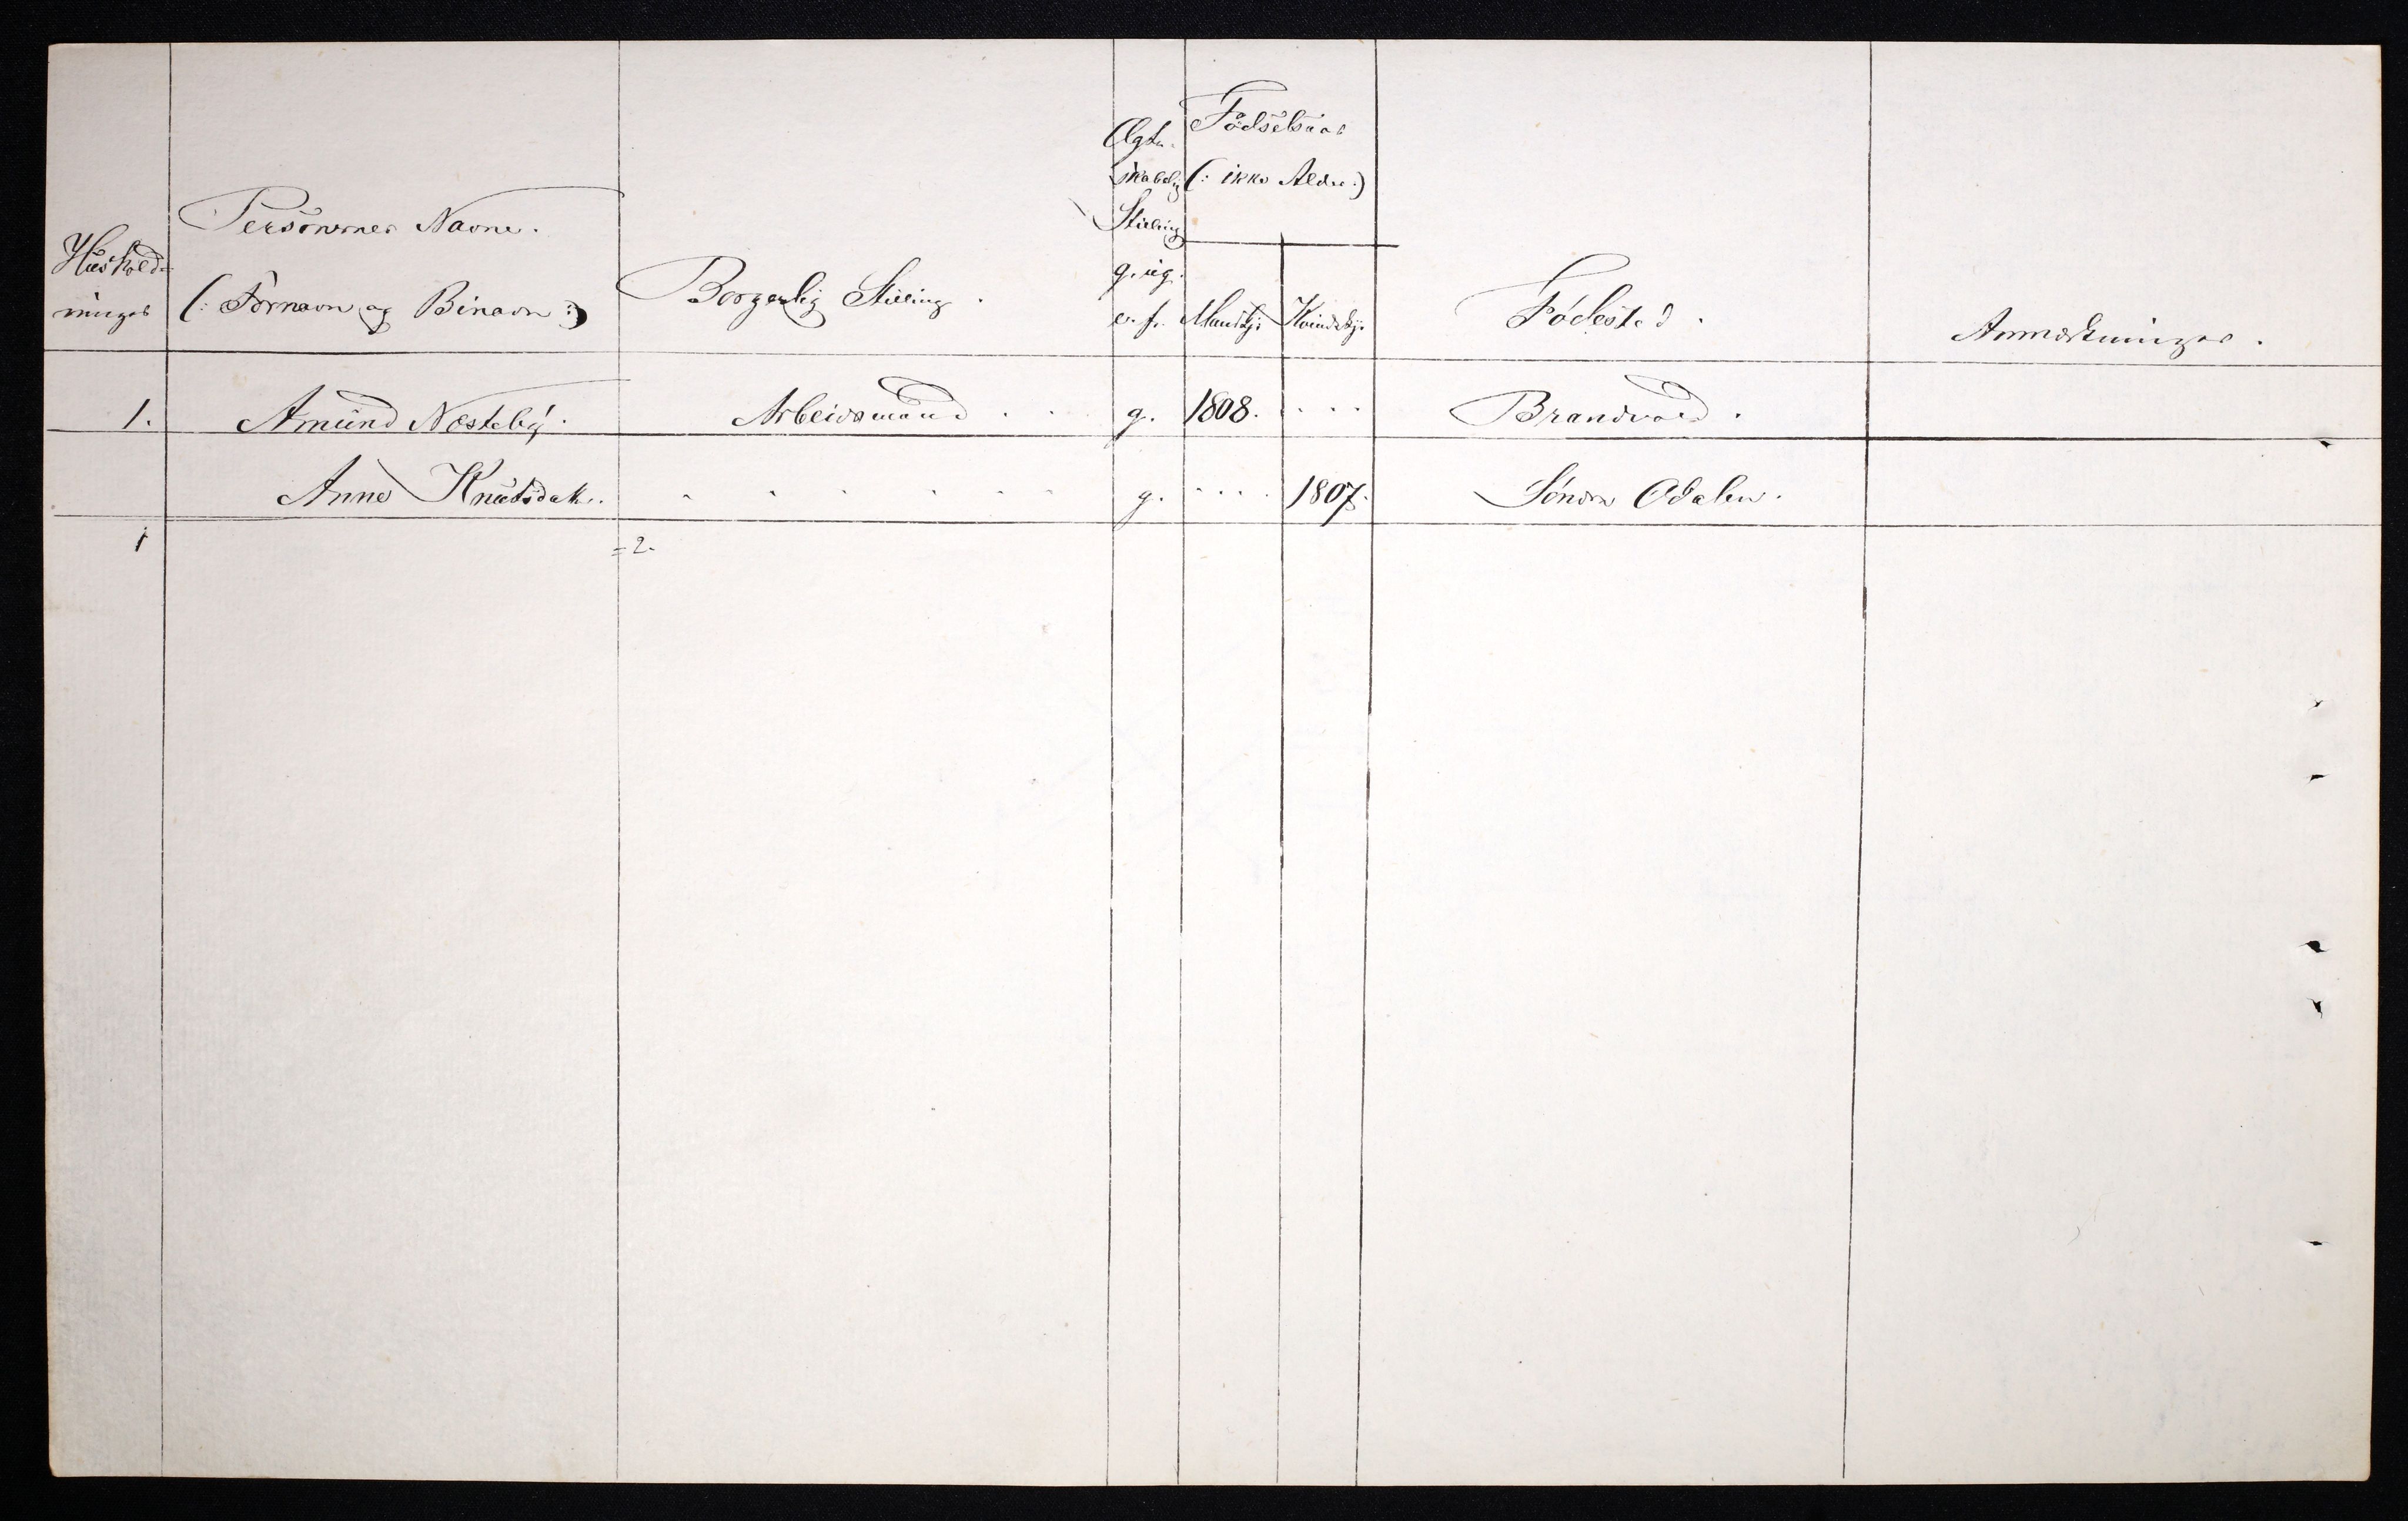 Husholdninger
Personernes Navne.
(: Fornavn og Binavn :)
Borgerlig Stilling.
Ægteskabelig Stilling
g. ug.
e. f.
Fødselsaar
(: ikke Alder :)
Mandkj. Kvindekj.
Fødested.
Anmærkninger.
1. Amund Næsteby. Arbeidsmand . . g. 1808. . . . Brandvold.
Anne Knutsdatt. . . . . . . g. . . . . 1807. Söndre Odalen.
1 =2.